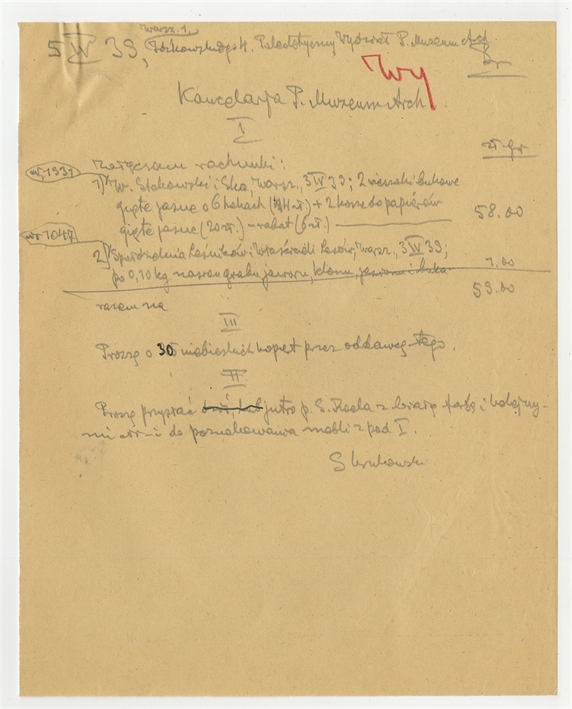 Warsz. 1,
5 IV 39, 4. Paleobotaniczny Wydział P. Muzeum Arch
Wy
Kancelarja P. Muzeum Arch
I
Załączam rachunki: zł. gr
nr 1931
1) W. Stakowski i Ska, Warsz., 3 IV 39; 2 wieszaki bukowe
gięte jasne o 6 hakach (44 zł.) + 2 kosze do papierów
gięte jasne (20 zł.) – rabat (6 zł.) 58.00
nr 1047
2) Spółdzielnia Leśników i Właścicieli Lasów, Warsz., 3 IV 39;
po 0,10 kg nasion grabu, jaworu, klonu, jesionu i buka 1.00
razem na 59.00
III
Proszę o 30 niebieskich kopert przez oddawcę tego.
II
Proszę przysłać jutro p. S. z białą farbą i kolejny-
mi do poznakowania mebli z pod I.